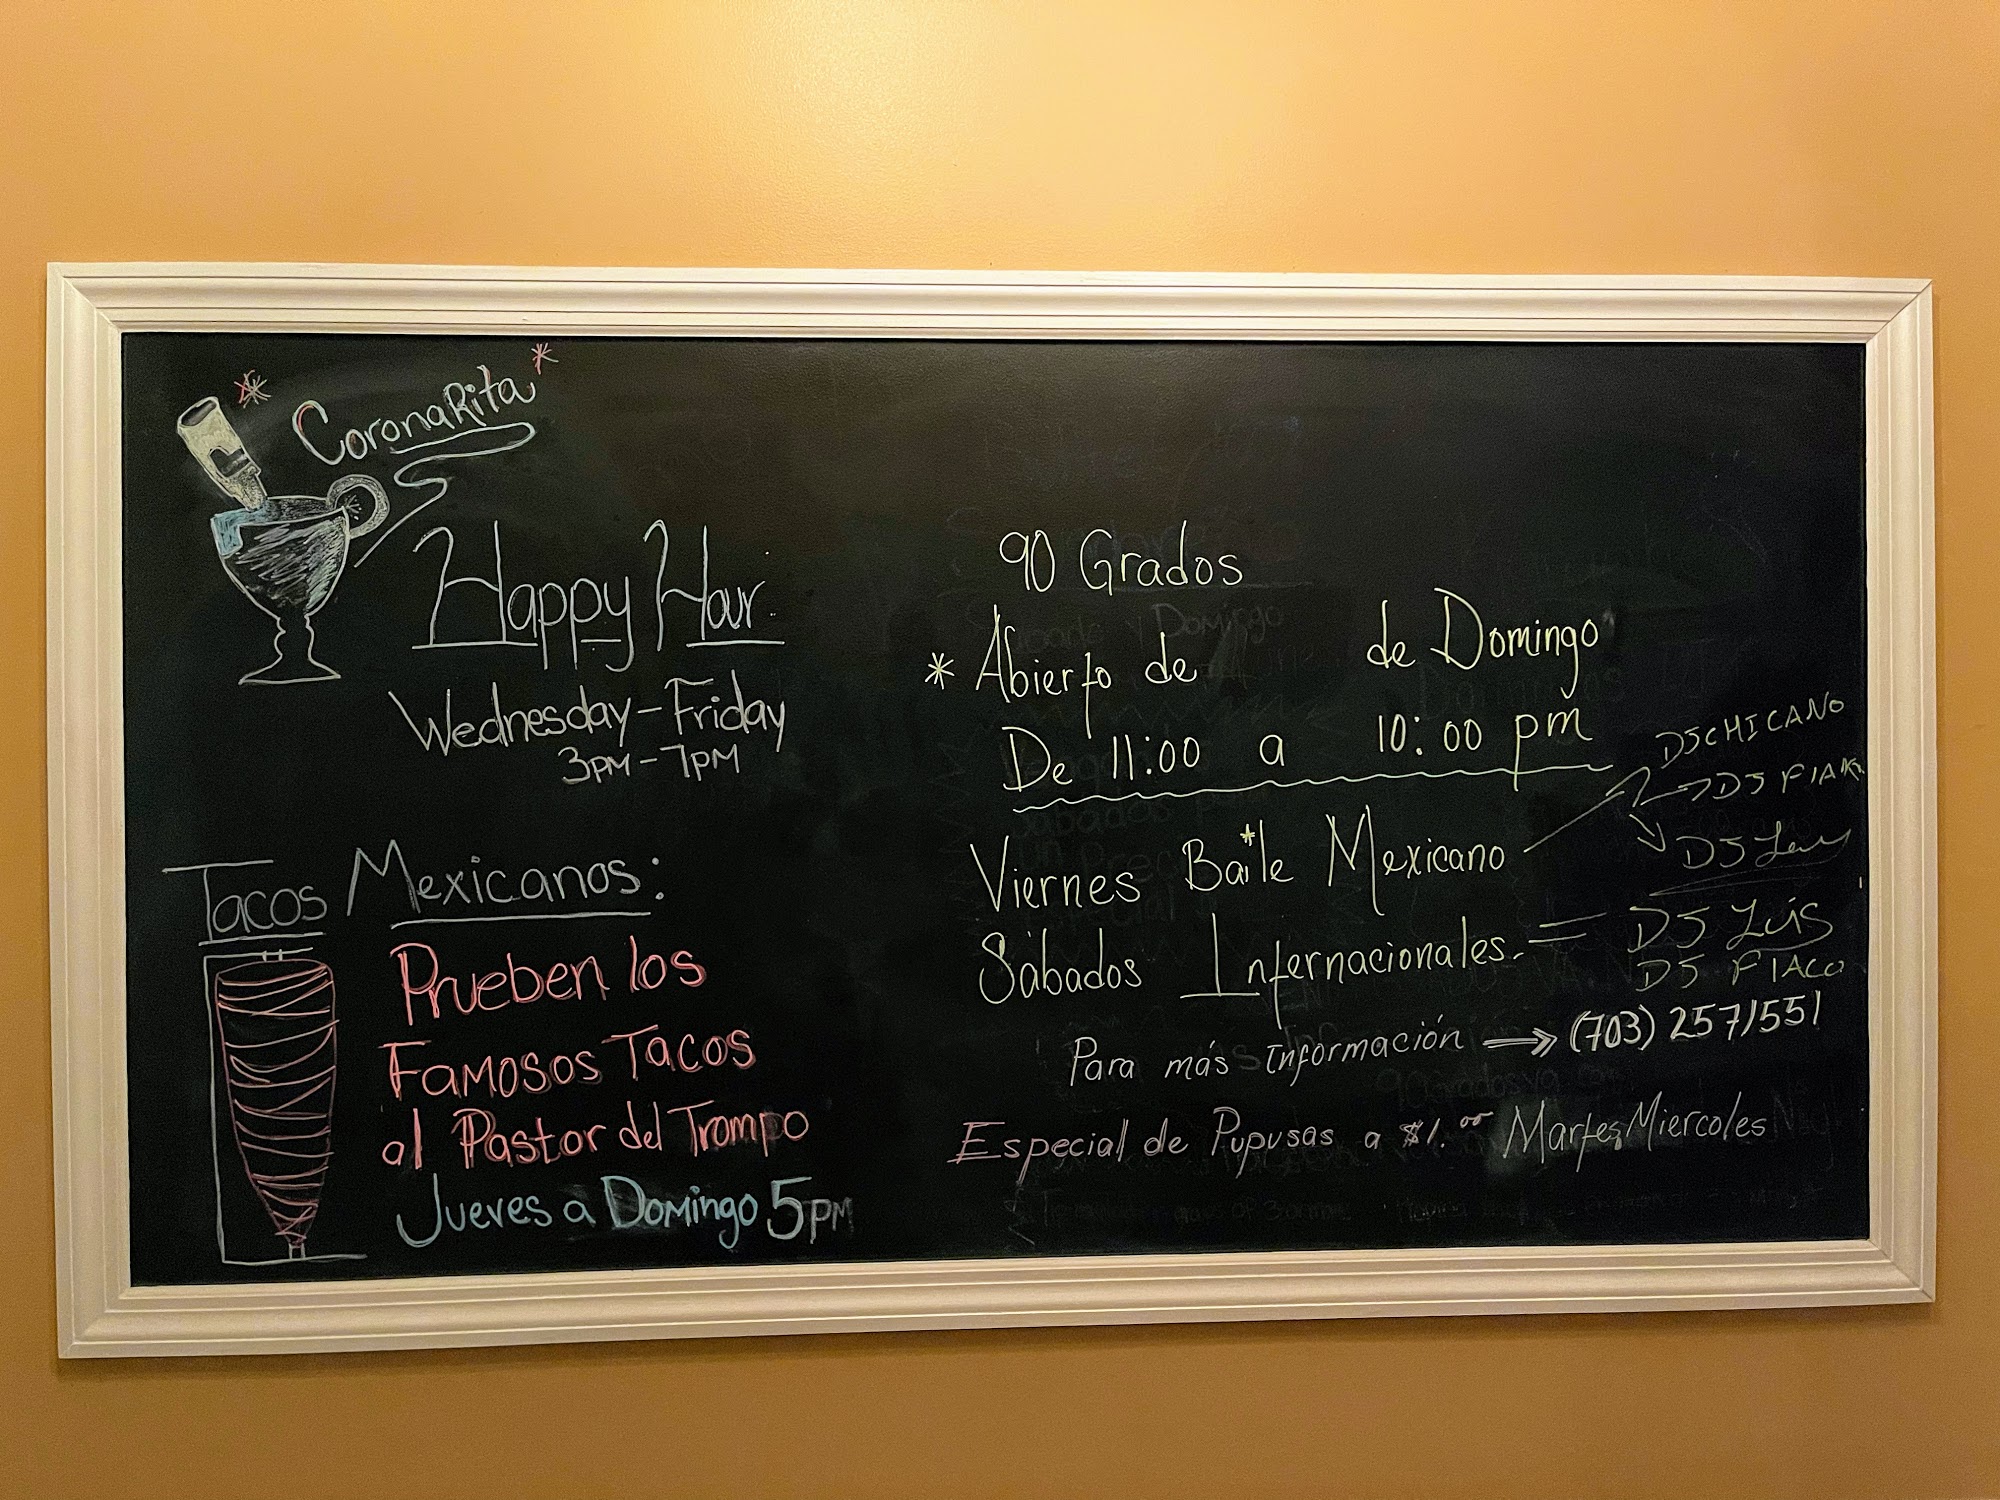 CoronaRita
Happy Hour
Wednesday - Friday
3PM - 7PM
Tacos Mexicanos:
Prueben los
Famosos Tacos
al Pastor del Trompo
Jueves a Domingo 5PM
90 Grados
* Abierto de de Domingo
De 11:00 a 10:00 pm
Viernes Baile Mexicano
DJ CHICANO
DJ
DJ
Sábados Internacionales = DJ Luis
DJ FIACO
Para más Información ⟹ (703) 2571551
Especial de Pupusas a $1.00 Martes Miercoles